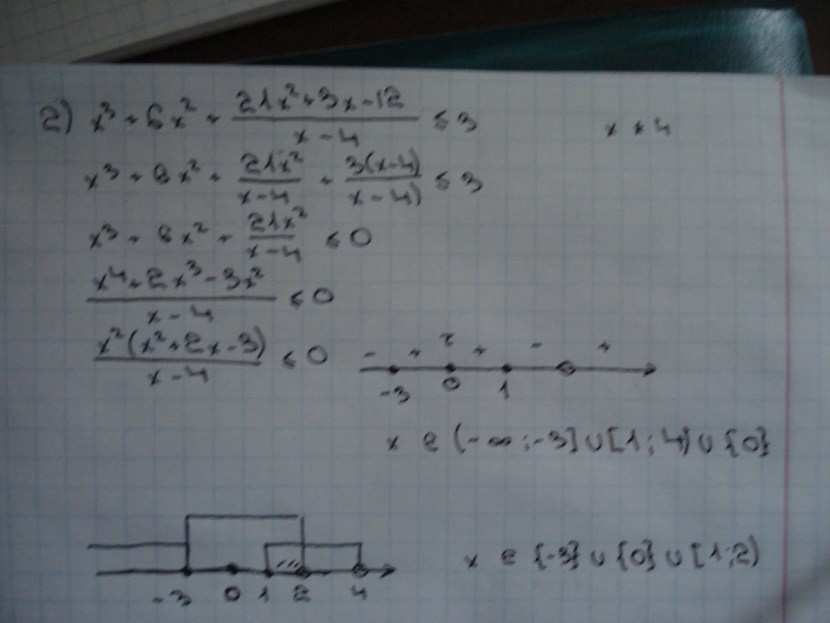 2) x³ + 6x² + (21x² + 3x - 12)/(x - 4) ≤ 3    x ≠ 4
x³ + 6x² + 21x²/(x - 4) + 3(x - 4)/(x - 4) ≤ 3
x³ + 6x² + 21x²/(x - 4) ≤ 0
(x⁴ + 2x³ - 3x²)/(x - 4) ≤ 0
x²(x² + 2x - 3)/(x - 4) ≤ 0    - + 2 + - +
-3 0 1
x ∈ (-∞; -3] ∪ [1; 4) ∪ {0}
x ∈ {-3} ∪ {0} ∪ [1; 2)
-3 0 1 2 4